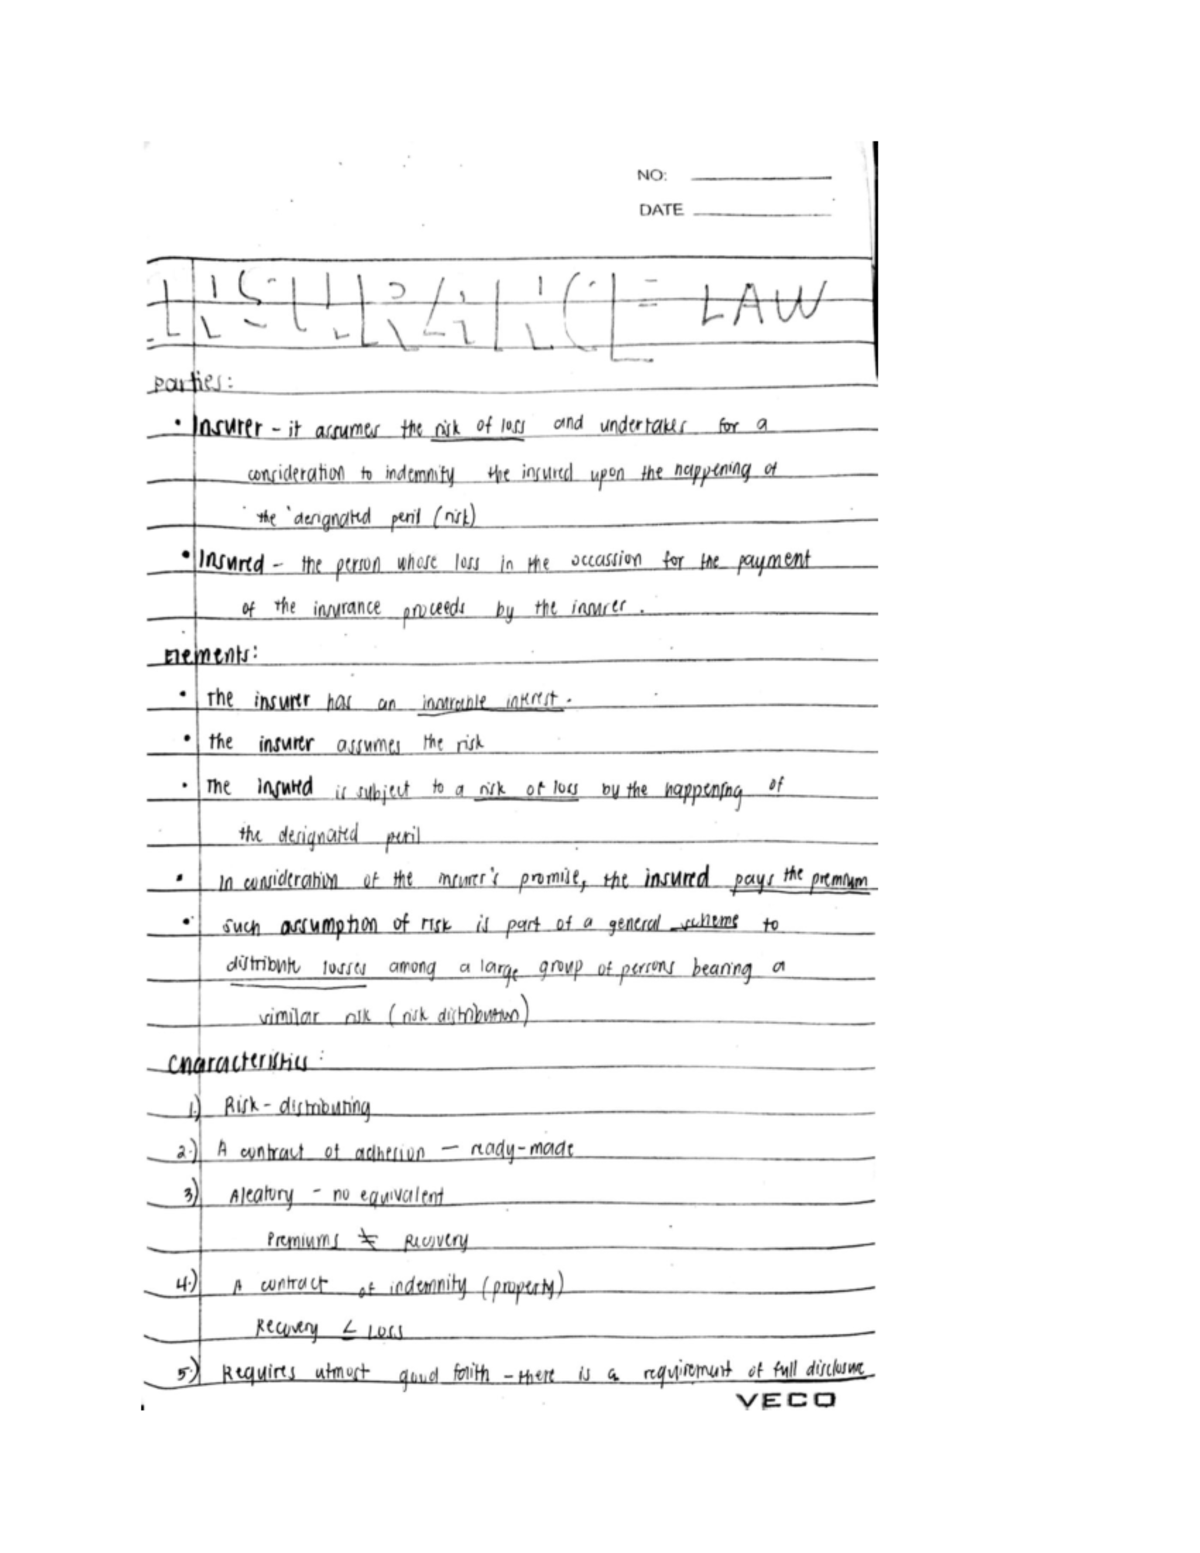 NO:
DATE
INSURANCE LAW
Parties:
• Insurer - it assumes the risk of loss and undertakes for a
consideration to indemnity the insured upon the happening of
the designated peril (risk)
• Insured - the person whose loss in the occassion for the payment
of the insurance proceeds by the insurer.
Elements:
• The insurer has an insurable interest.
• the insurer assumes the risk
• The insured is subject to a risk of loss by the happening of
the designated peril
• In consideration of the insurer's promise, the insured pays the premium
• Such assumption of risk is part of a general scheme to
distribute losses among a large group of persons bearing a
similar risk (risk distribution)
Characteristics:
1.) Risk - distributing
2.) A contract of adhesion — ready-made
3) Aleatory - no equivalent
Premiums ≠ Recovery
4.) A contract of indemnity (property)
Recovery ∠ Loss
5.) Requires utmost good faith - there is a requirement of full disclosure
VECO